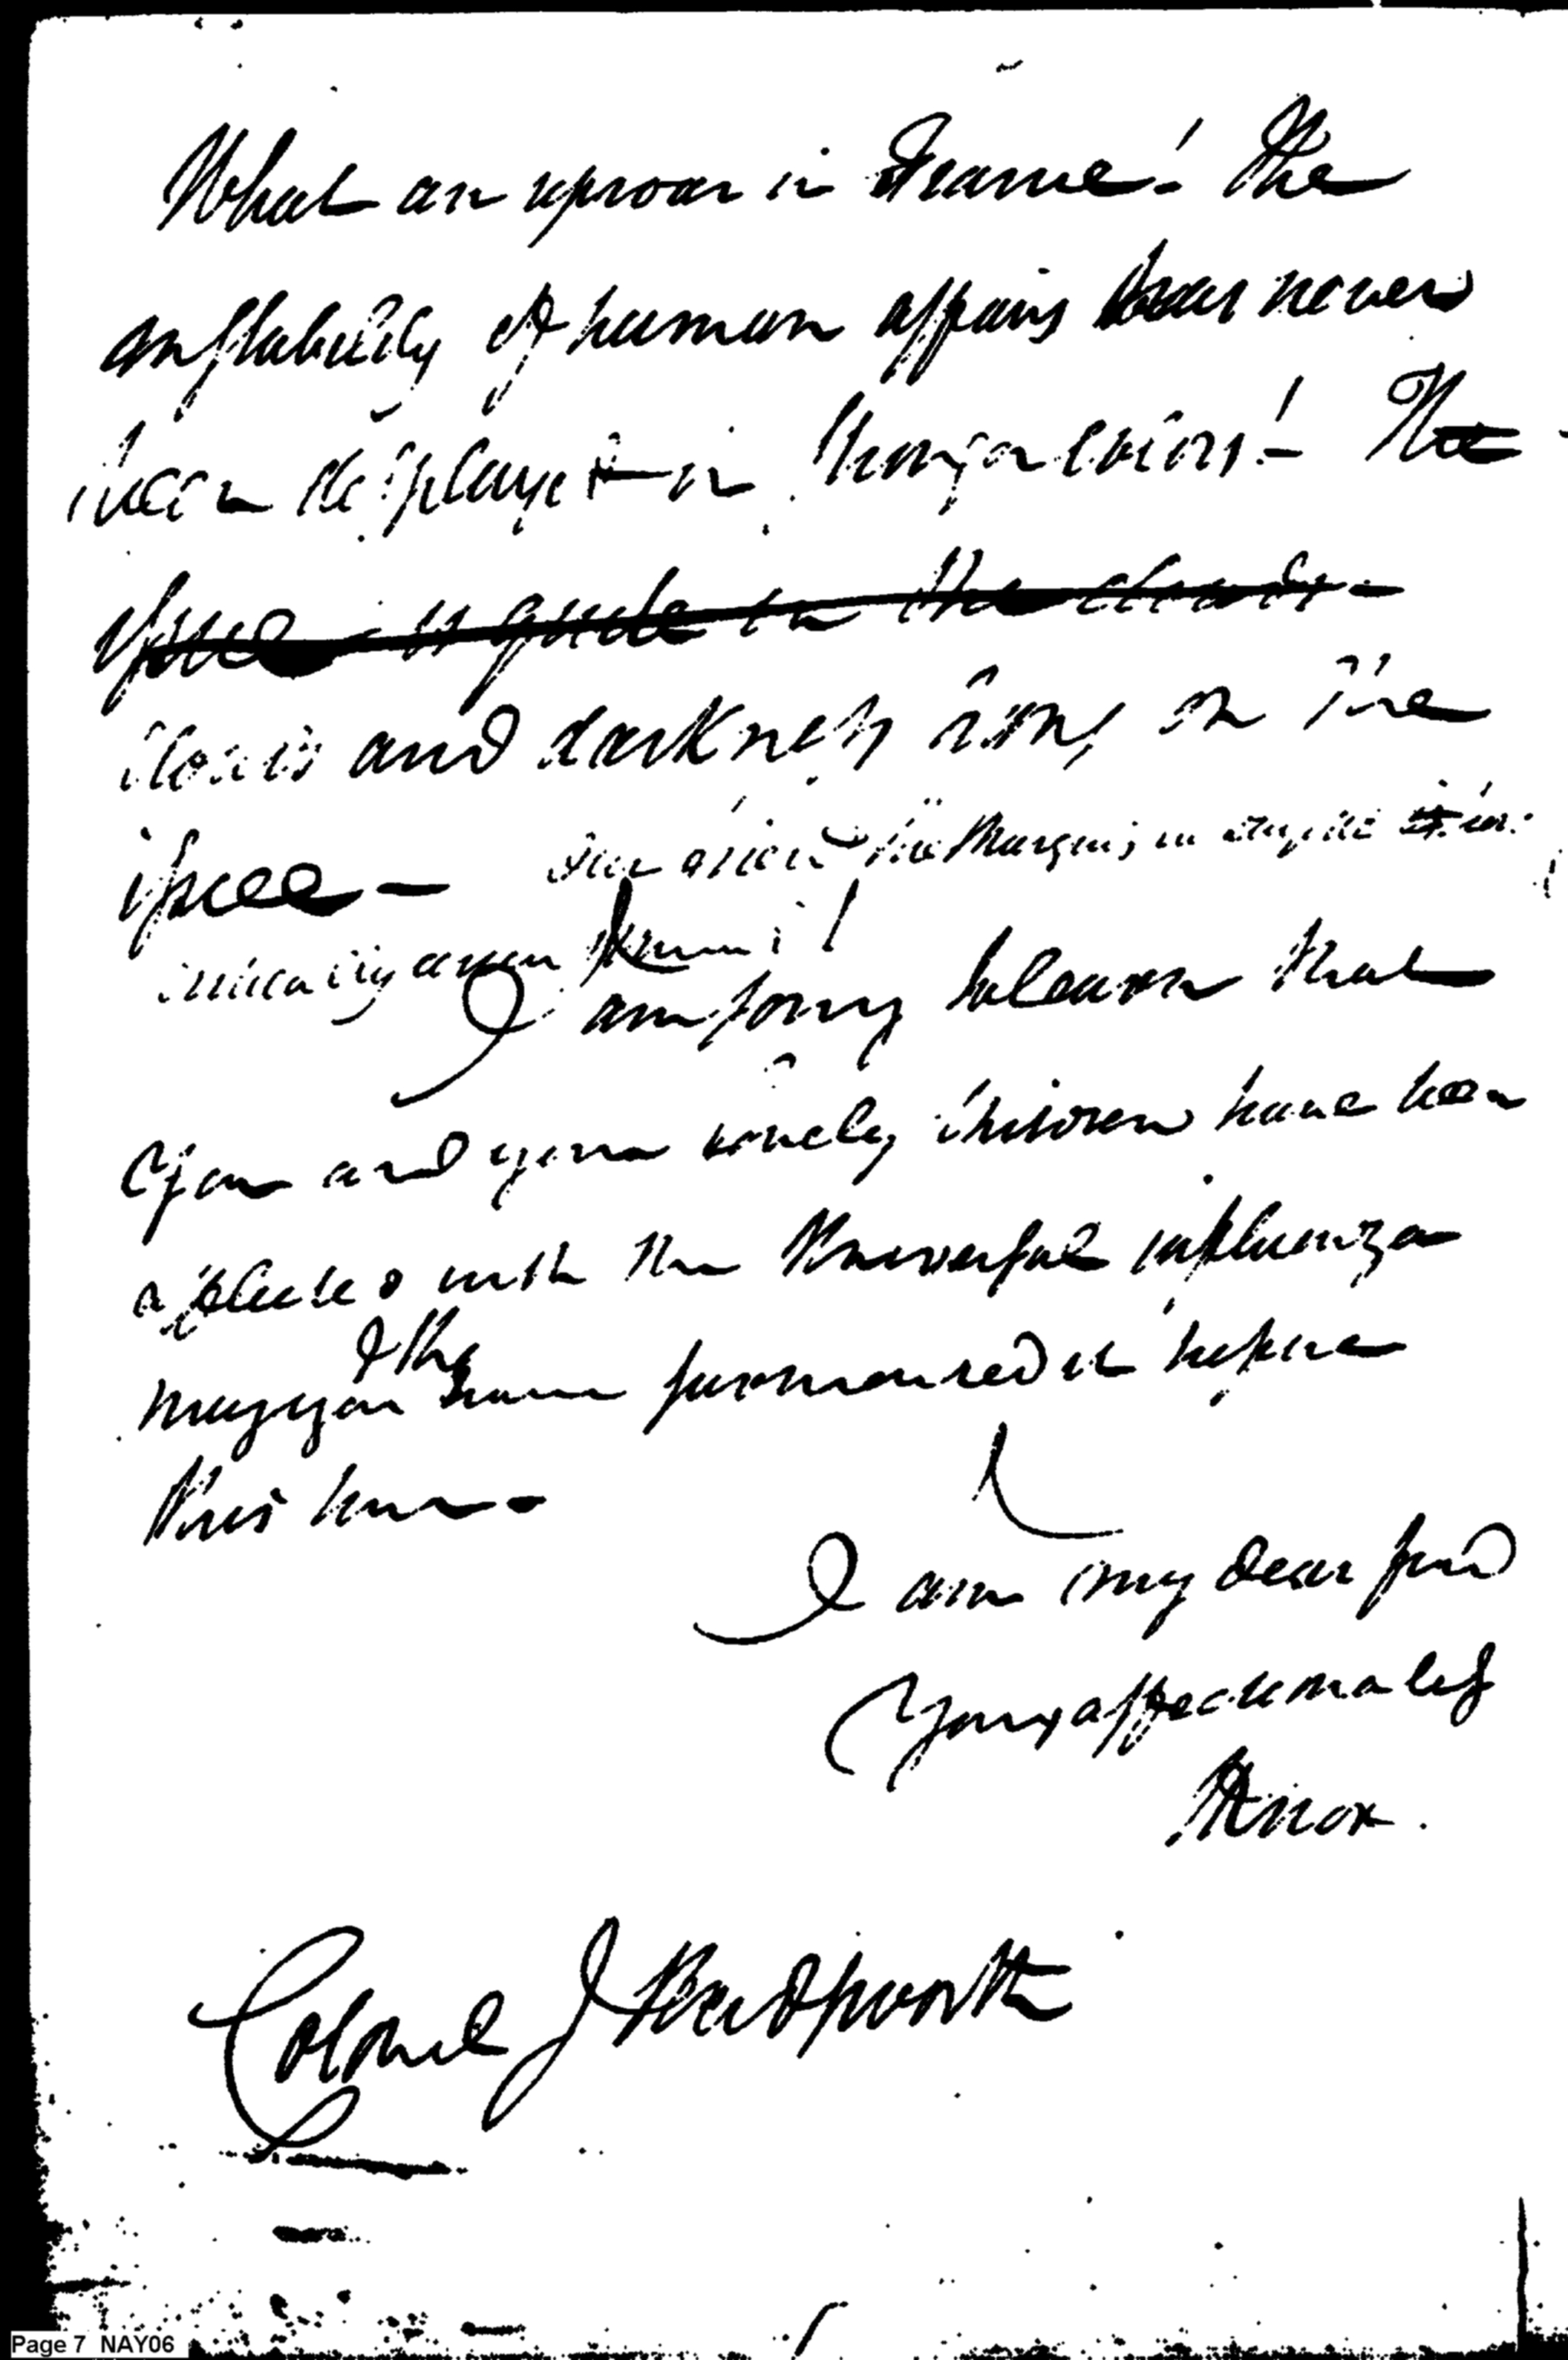 What an uproar in France! The
instability of human affairs has never
been displayed in stronger colors! The
issue is quite in the clouds -
clouds and darkness rest on the
issue - Our friend the Marquis in
critically
I am sorry to learn that
you and your lovely children have been
afflicted with the powerful influenza
& the
may you have surmounted it before
this hour -
I am my dear friend
Yours affectionately
HKnox.
Colonel J Wadsworth
Page 7 NAY06